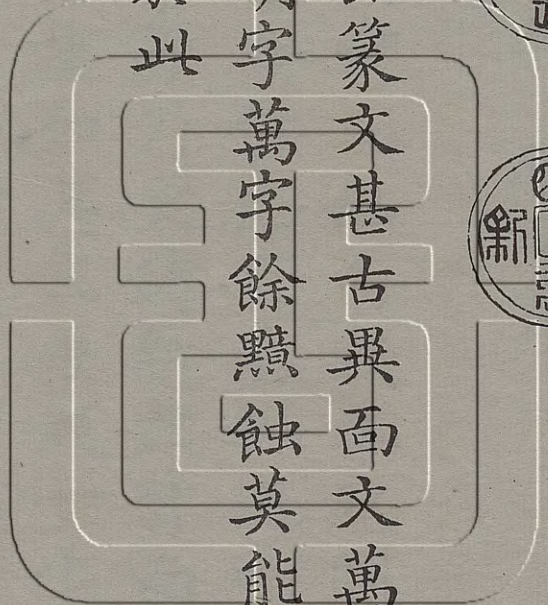 篆文甚古異面文萬
字萬字餘黦蝕莫能
此